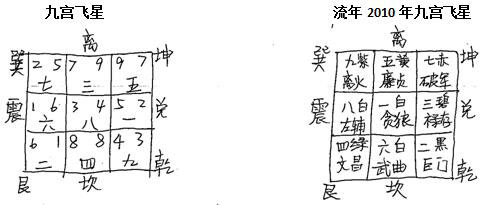 九宫飞星
离
巽 坤
2 5 7 9 9 7
七 三 五
震 兑
1 6 3 4 5 2
六 八 一
6 1 8 8 4 3
二 四 九
艮 坎 乾
流年 2010 年九宫飞星
离
巽 坤
九紫 五黄 七赤
离火 廉贞 破军
震 兑
八白 一白 三碧
左辅 贪狼 禄存
四绿 六白 二黑
文昌 武曲 巨门
艮 坎 乾